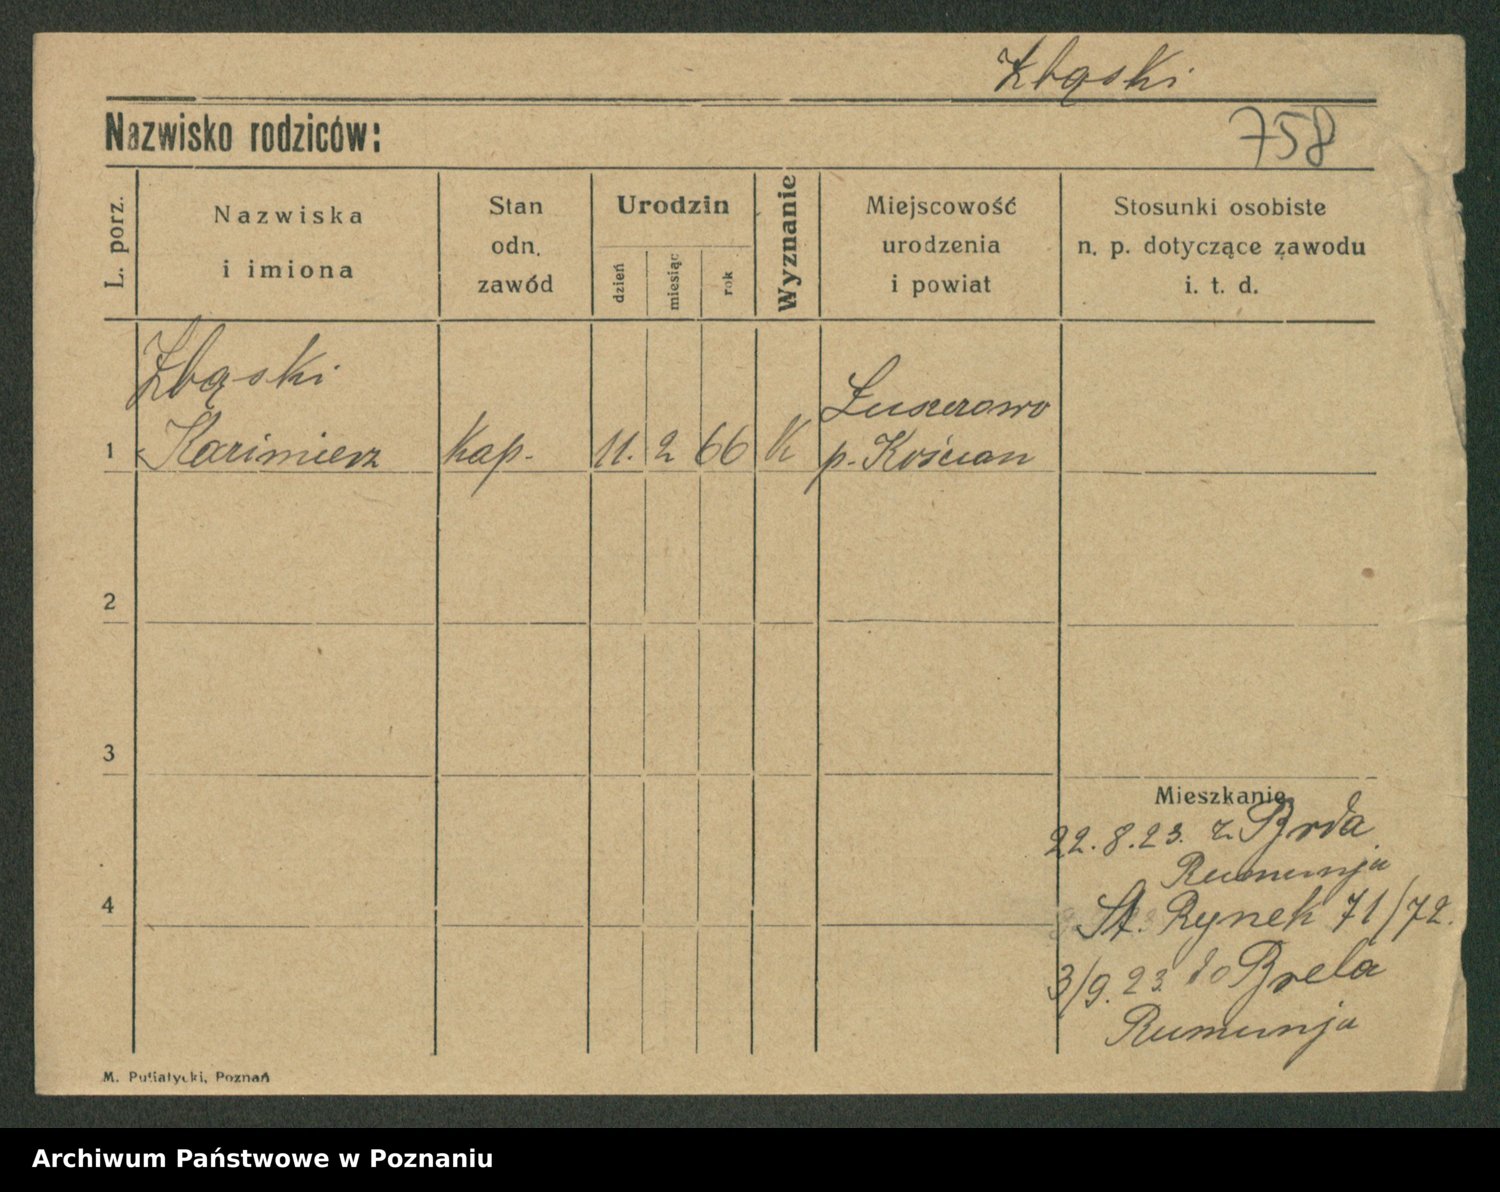 Zbąski
758
Nazwisko rodziców:
L. porz.
Nazwiska
i imiona
Stan
odn.
zawód
Urodzin
dzień
miesiąc
rok
Wyznanie
Miejscowość
urodzenia
i powiat
Stosunki osobiste
n. p. dotyczące zawodu
i. t. d.
Zbąski
1 Kazimierz Kap. 11. 2 66 K
p. Kościan
2
3
4
Mieszkanie
22.8.23. z
Rumunja
St. Rynek 71/72.
3/9.23 do Brela
Rumunja
M. Putiatycki, Poznań
Archiwum Państwowe w Poznaniu